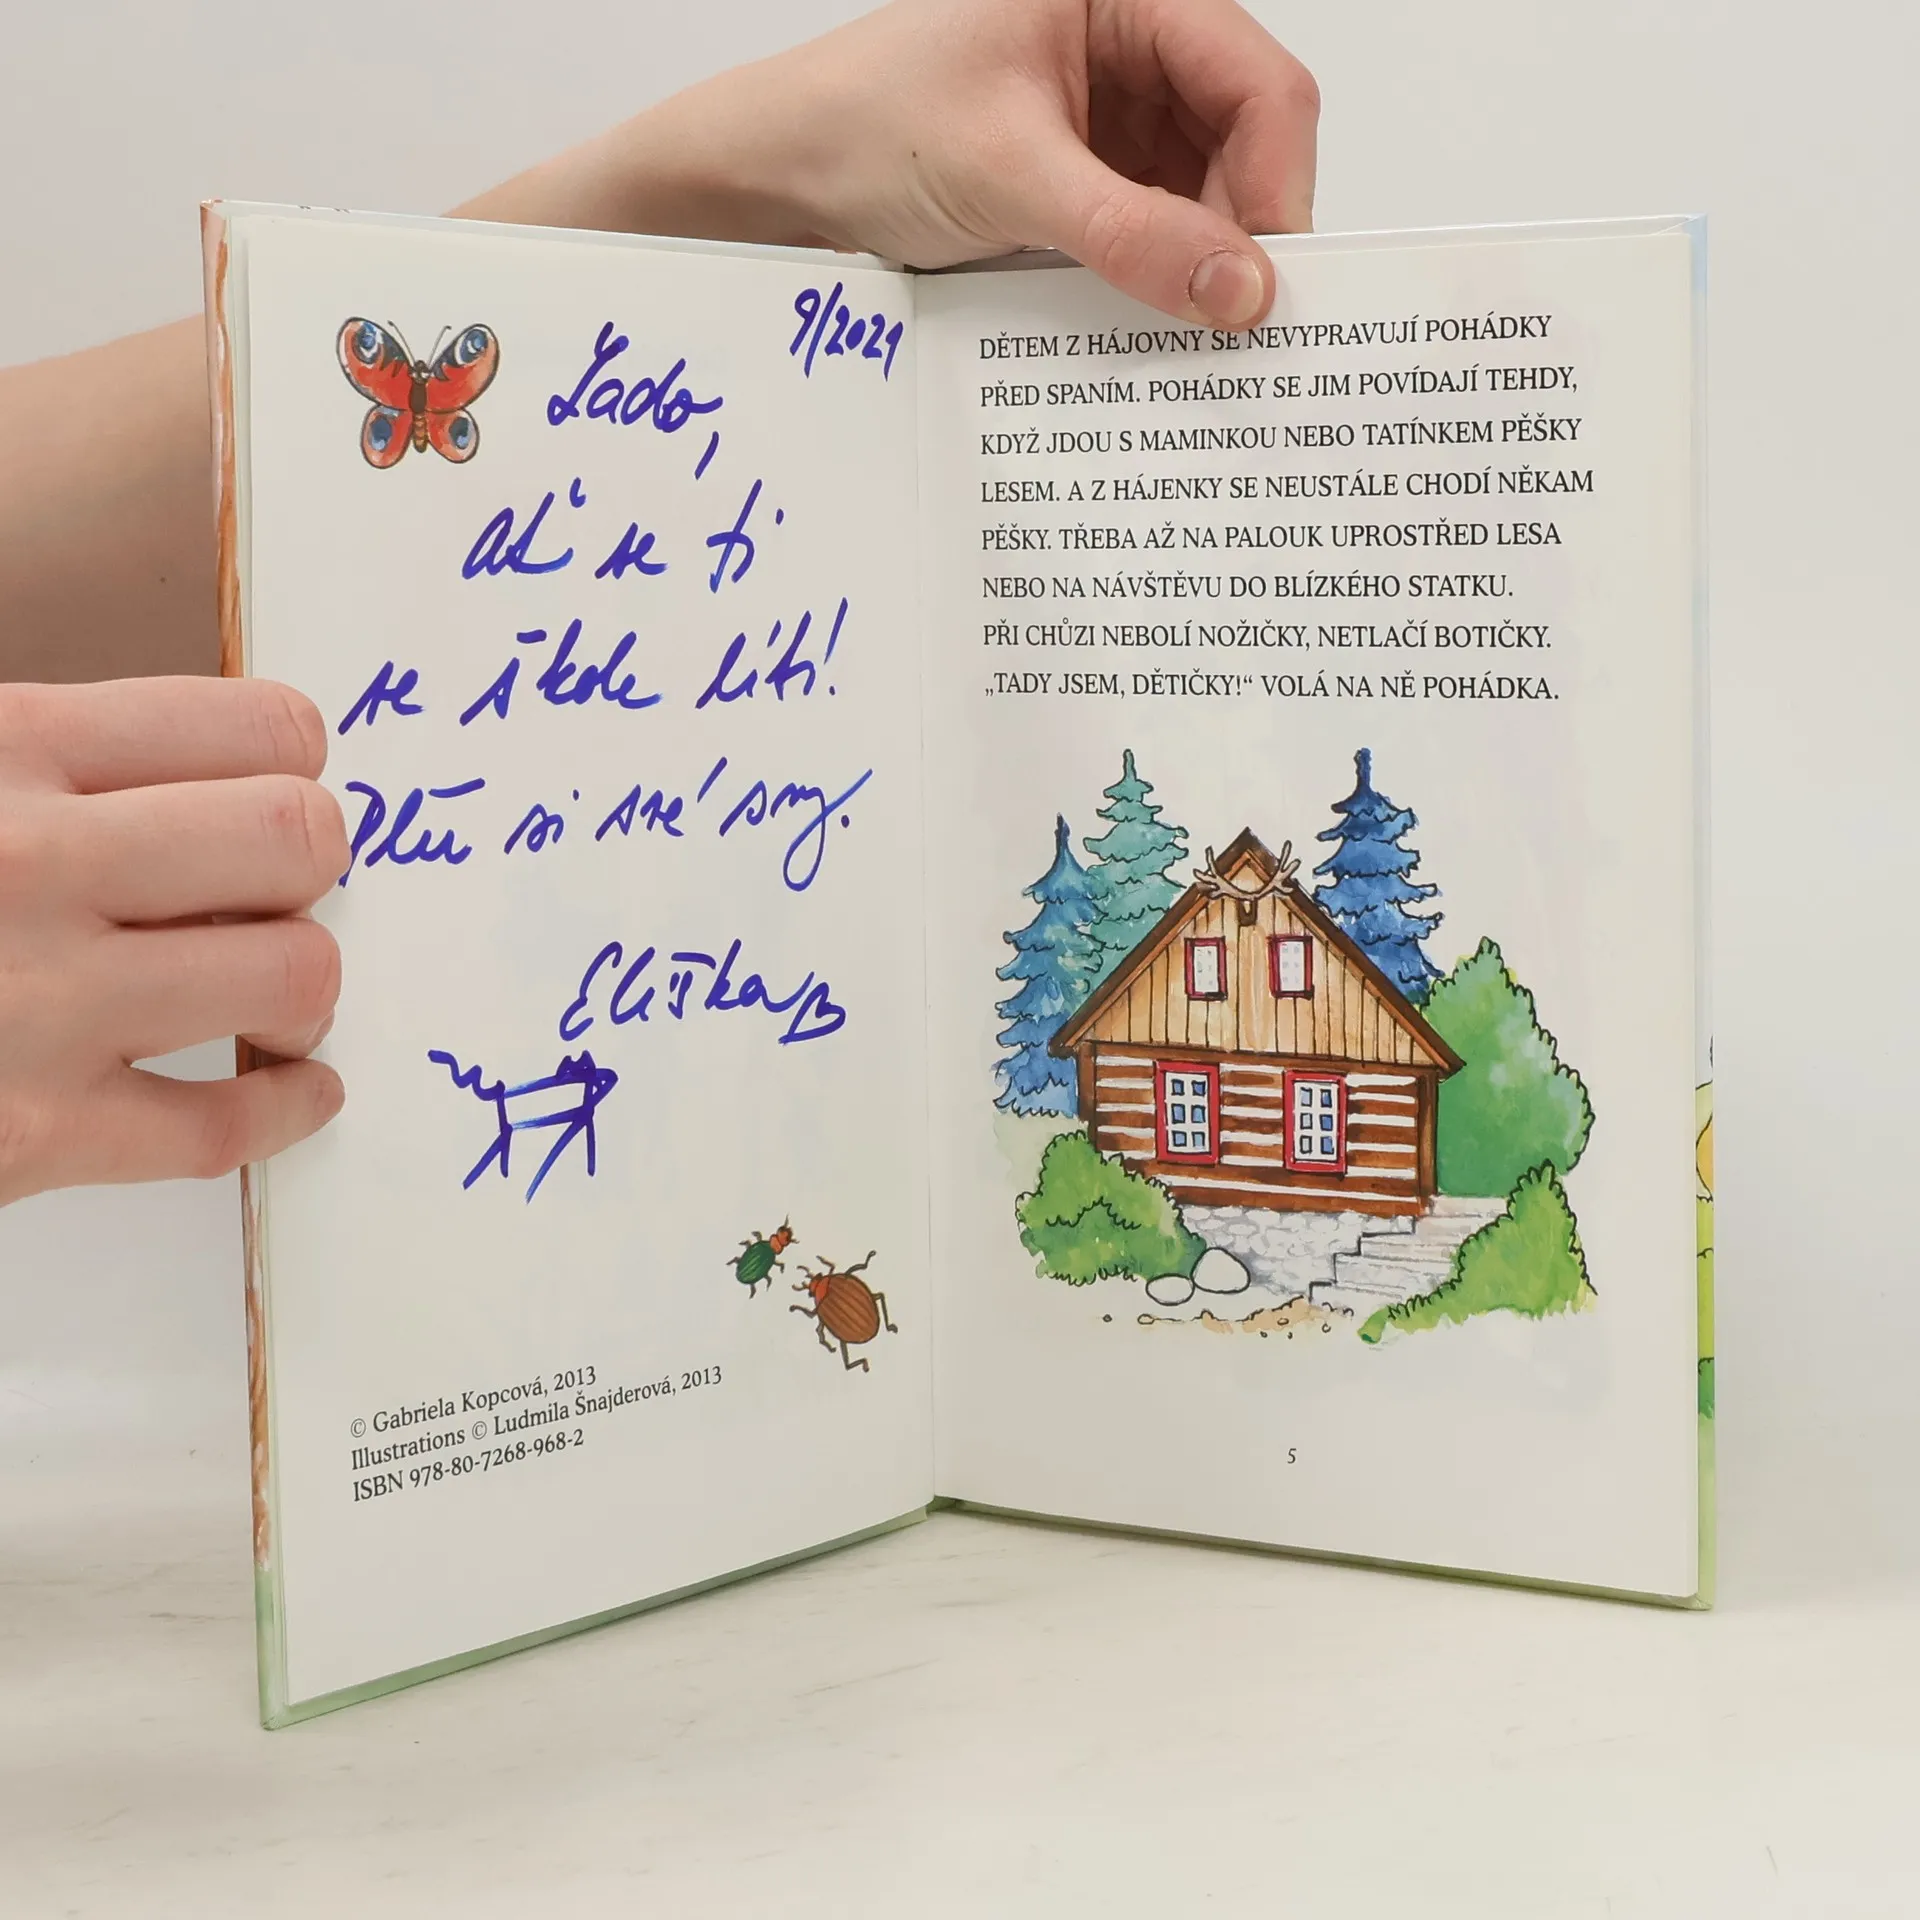 9/2021
Lado,
ať se ti
ve škole líbí!
Plň si své sny.
Eliška B
© Gabriela Kopcová, 2013
Illustrations © Ludmila Šnajderová, 2013
ISBN 978-80-7268-968-2
DĚTEM Z HÁJOVNY SE NEVYPRAVUJÍ POHÁDKY
PŘED SPANÍM. POHÁDKY SE JIM POVÍDAJÍ TEHDY,
KDYŽ JDOU S MAMINKOU NEBO TATÍNKEM PĚŠKY
LESEM. A Z HÁJENKY SE NEUSTÁLE CHODÍ NĚKAM
PĚŠKY. TŘEBA AŽ NA PALOUK UPROSTŘED LESA
NEBO NA NÁVŠTĚVU DO BLÍZKÉHO STATKU.
PŘI CHŮZI NEBOLÍ NOŽIČKY, NETLAČÍ BOTIČKY.
„TADY JSEM, DĚTIČKY!“ VOLÁ NA NĚ POHÁDKA.
5